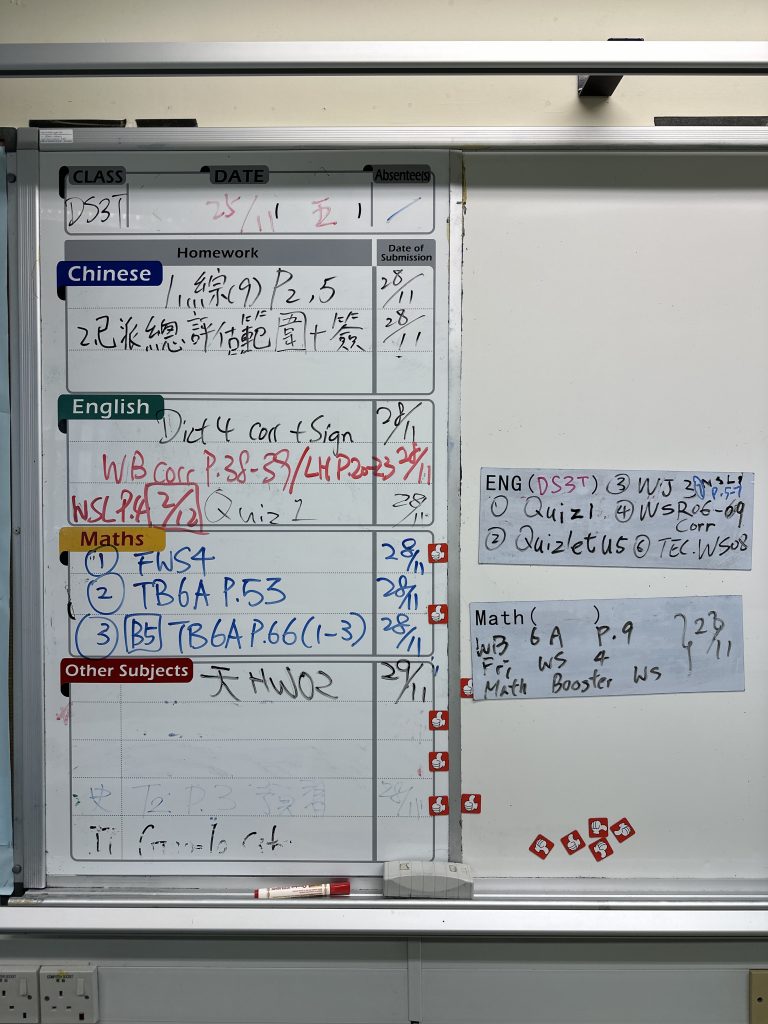 CLASS DATE Absentee(s)
DS3T 25/11 五
Homework Date of Submission
Chinese
1.綜(9) P2,5 28/11
2.已派總評估範圍+簽 28/11
English
Dict 4 Corr + Sign 28/11
WB Corr P.38-39/LH P.20-23 28/11
WSL P.4 2/12 Quiz 1 28/11
Maths
① FWS4 28/11
② TB6A P.53 28/11
③ B5 TB6A P.66 (1-3) 28/11
Other Subjects
天 HW02 29/11
史 P.3 28/11
ENG (DS3T) ③ WJ 3
① Quiz 1 ④ WSR06-09
Corr
② Quizlet U5 ⑥ TEC.WS08
Math( )
WB 6A P.9
Fri WS 4 23/11
Math Booster WS